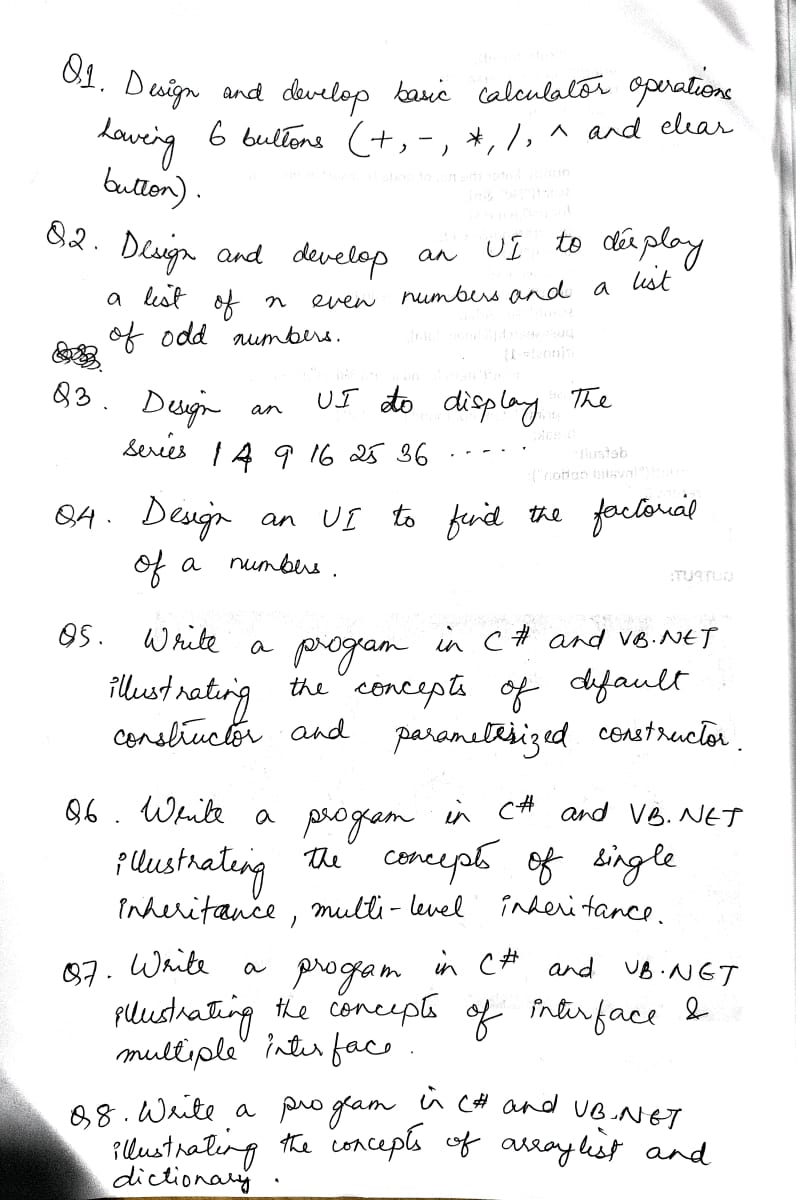 Q1. Design and develop basic calculator operations
having 6 buttons (+, -, *, /, ^ and clear
button).
Q2. Design and develop an UI to display
a list of n even numbers and a list
of odd numbers.
Q3. Design an UI to display the
series 1 4 9 16 25 36 ......
Q4. Design an UI to find the factorial
of a numbers.
Q5. Write a program in C# and VB.NET
illustrating the concepts of default
constructor and parameterized constructor.
Q6. Write a program in C# and VB.NET
illustrating the concepts of single
inheritance, multi-level inheritance.
Q7. Write a program in C# and VB.NET
illustrating the concepts of interface &
multiple interface.
Q8. Write a program in C# and VB.NET
illustrating the concepts of arraylist and
dictionary.